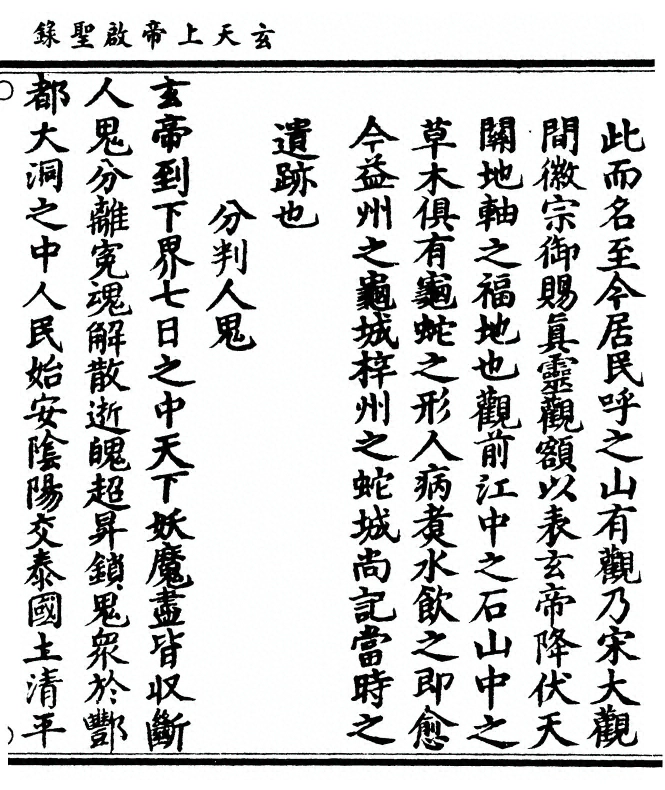 玄天上帝啟聖錄
此而名至今居民呼之山有觀乃宋大觀
間徽宗御賜眞靈觀額以表玄帝降伏天
關地軸之福地也觀前江中之石山中之
草木俱有龜蛇之形人病煑水飲之即愈
今益州之龜城梓州之蛇城尚記當時之
遺跡也
分判人鬼
玄帝到下界七日之中天下妖魔盡皆収斷
人鬼分離寃魂解散逝魄超昇鎖鬼衆於酆
都大洞之中人民始安陰陽交泰國土清平